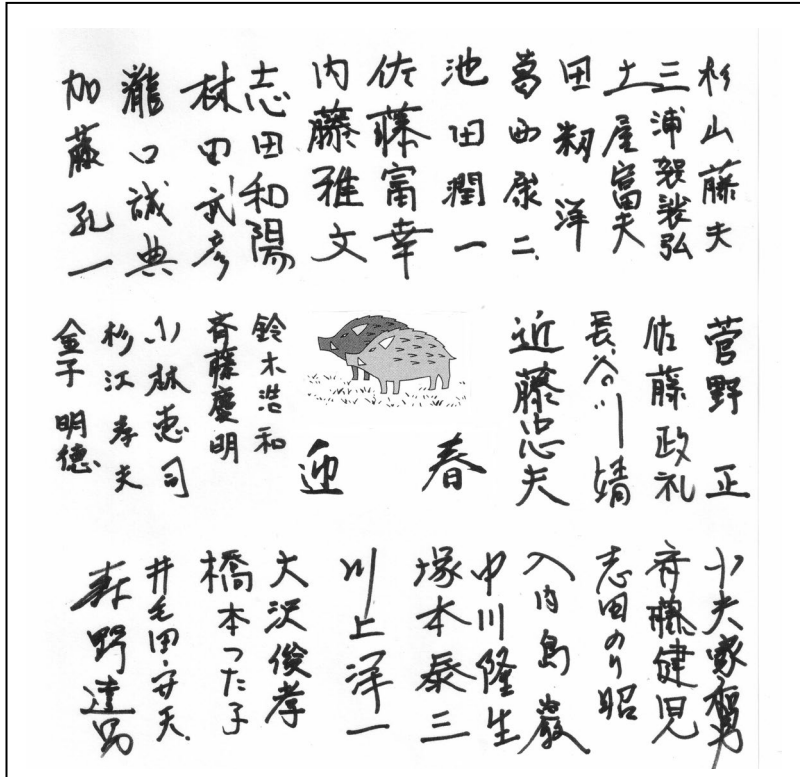 杉山藤夫
三浦袈裟弘
土屋富夫
田籾洋
葛西康二
池田潤一
佐藤富幸
内藤雅文
志田和陽
林田武彦
瀧口誠典
加藤孔一
菅野正
佐藤政礼
長谷川靖
近藤忠夫
迎春
鈴木浩和
斉藤慶明
小林恵司
杉江孝夫
金子明德
斉藤健児
志田のり昭
入内島巌
中川隆生
塚本泰三
川上洋一
大沢俊孝
橋本つた子